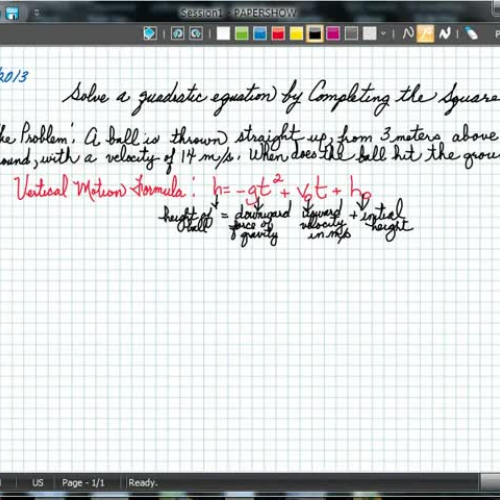 Session1 - PAPERSHOW
2013
Solve a quadratic equation by Completing the Square
he Problem: A ball is thrown straight up, from 3 meters above
ound, with a velocity of 14 m/s. When does the ball hit the grou
Vertical Motion Formula: h = -gt² + v₀t + h₀
height of ball = downward force of gravity upward velocity in m/s + initial height
US Page - 1/1 Ready.